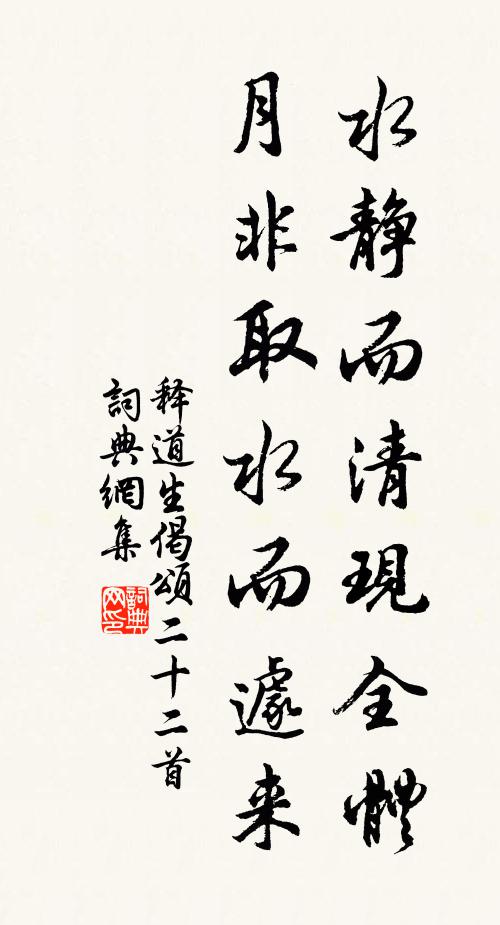 水静而清現全體
月非取水而遽来
释道生偈頌二十二首
詞典網集
詞典
网印